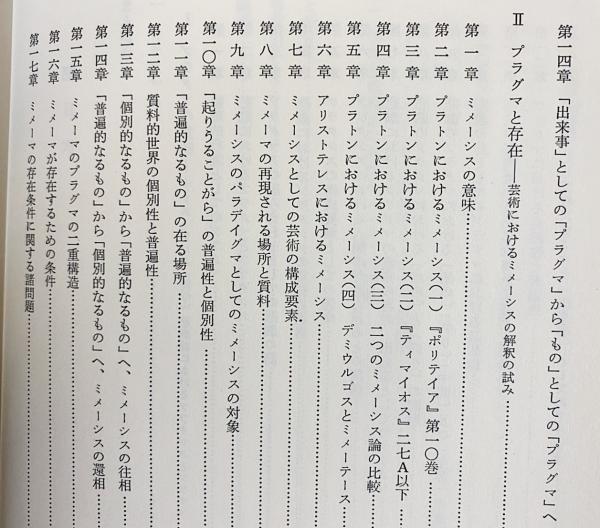 第一四章 「出来事」としての「プラグマ」から「もの」としての「プラグマ」へ
Ⅱ プラグマと存在――芸術におけるミメーシスの解釈の試み……
第一章 ミメーシスの意味……
第二章 プラトンにおけるミメーシス(一) 『ポリテイア』第一〇巻……
第三章 プラトンにおけるミメーシス(二) 『ティマイオス』二七A以下……
第四章 プラトンにおけるミメーシス(三) 二つのミメーシス論の比較……
第五章 プラトンにおけるミメーシス(四) デミウルゴスとミメーテース……
第六章 アリストテレスにおけるミメーシス……
第七章 ミメーシスとしての芸術の構成要素……
第八章 ミメーマの再現される場所と質料……
第九章 ミメーシスのパラデイグマとしてのミメーシスの対象……
第一〇章 「起りうることがら」の普遍性と個別性……
第一一章 「普遍的なるもの」の在る場所……
第一二章 質料的世界の個別性と普遍性……
第一三章 「個別的なるもの」から「普遍的なるもの」へ、ミメーシスの往相……
第一四章 「普遍的なるもの」から「個別的なるもの」へ、ミメーシスの還相……
第一五章 ミメーマのプラグマの二重構造……
第一六章 ミメーマが存在するための条件……
第一七章 ミメーマの存在条件に関する諸問題……